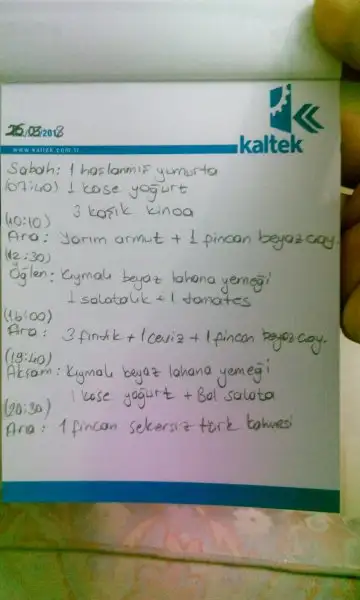 26/03/2018
kaltek
www.kaltek.com.tr
Sabah: 1 haşlanmış yumurta
(07:40) 1 kase yoğurt
3 kaşık kinoa
(10:10)
Ara: Yarım armut + 1 fincan beyaz çay.
(12:30)
Öğlen: Kıymalı beyaz lahana yemeği
1 salatalık + 1 domates
(16:00)
Ara: 3 fındık + 1 ceviz + 1 fincan beyaz çay.
(19:40)
Akşam: Kıymalı beyaz lahana yemeği
1 kase yoğurt + Bol salata
(20:30)
Ara: 1 fincan şekersiz türk kahvesi